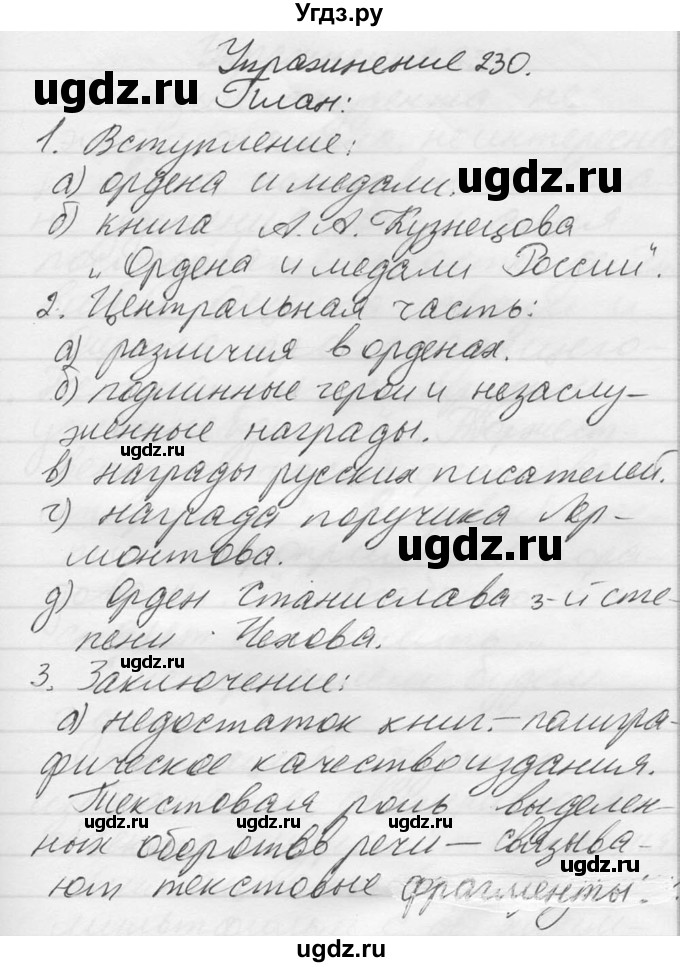 Угдз.ру
Упражнение 230.
План:
1. Вступление:
а) ордена и медали.
б) книга А.А. Кузнецова
„Ордена и медали России".
2. Центральная часть:
а) различия в орденах.
б) подлинные герои и незаслу-
женные награды.
в) награды русских писателей.
г) награда поручика Лер-
монтова.
д) Орден Станислава 3-й сте-
пени Чехова.
3. Заключение:
а) недостаток книг. – полигра-
фическое качество издания.
Текстовая роль выделен-
ных оборотов речи – связыва-
ют текстовые фрагменты.
ugdz.ru
ugdz.ru
ugdz.ru
ugdz.ru
ugdz.ru
ugdz.ru
ugdz.ru
ugdz.ru